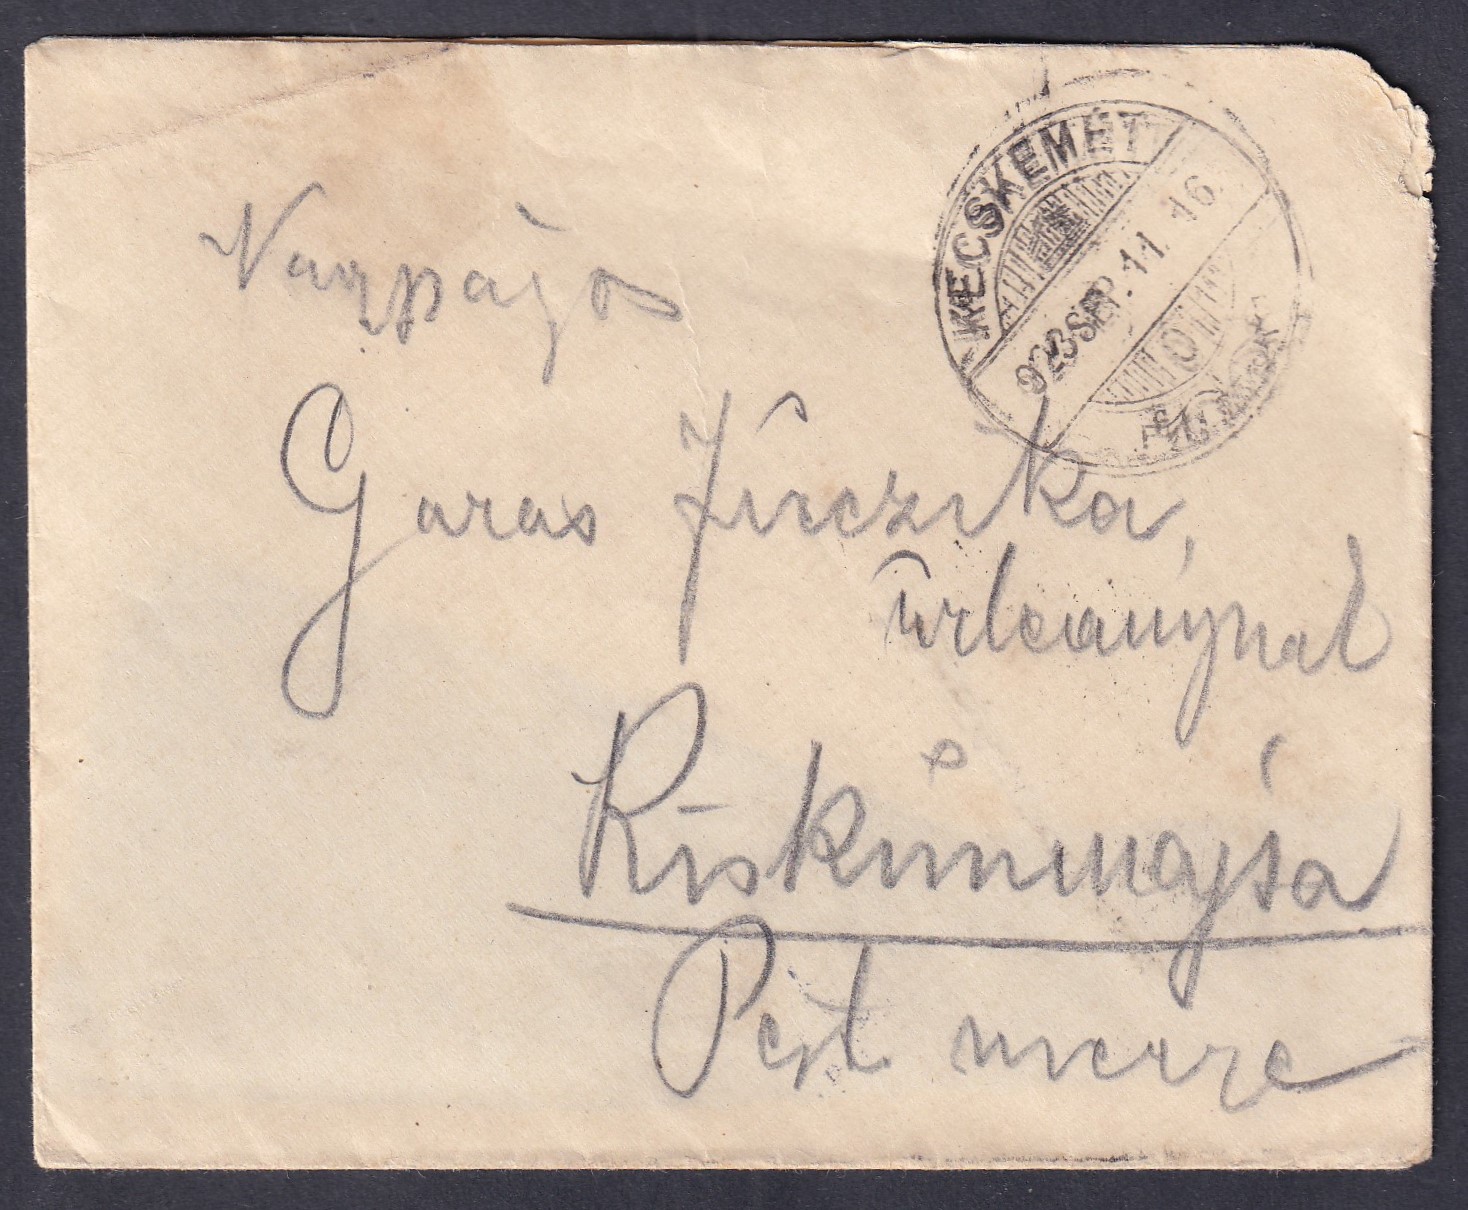 KECSKEMÉT
923 SEP. 11. 16
Nagyságos
Garas Juczika,
úrleánynak
Kiskunmajsa
Pest megye